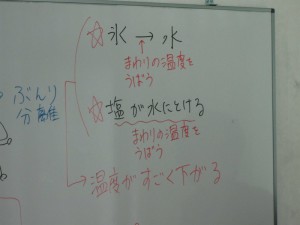 ☆氷→水
まわりの温度を
うばう
ぶんり
分離
☆塩が水にとける
まわりの温度を
うばう
→温度がすごく下がる